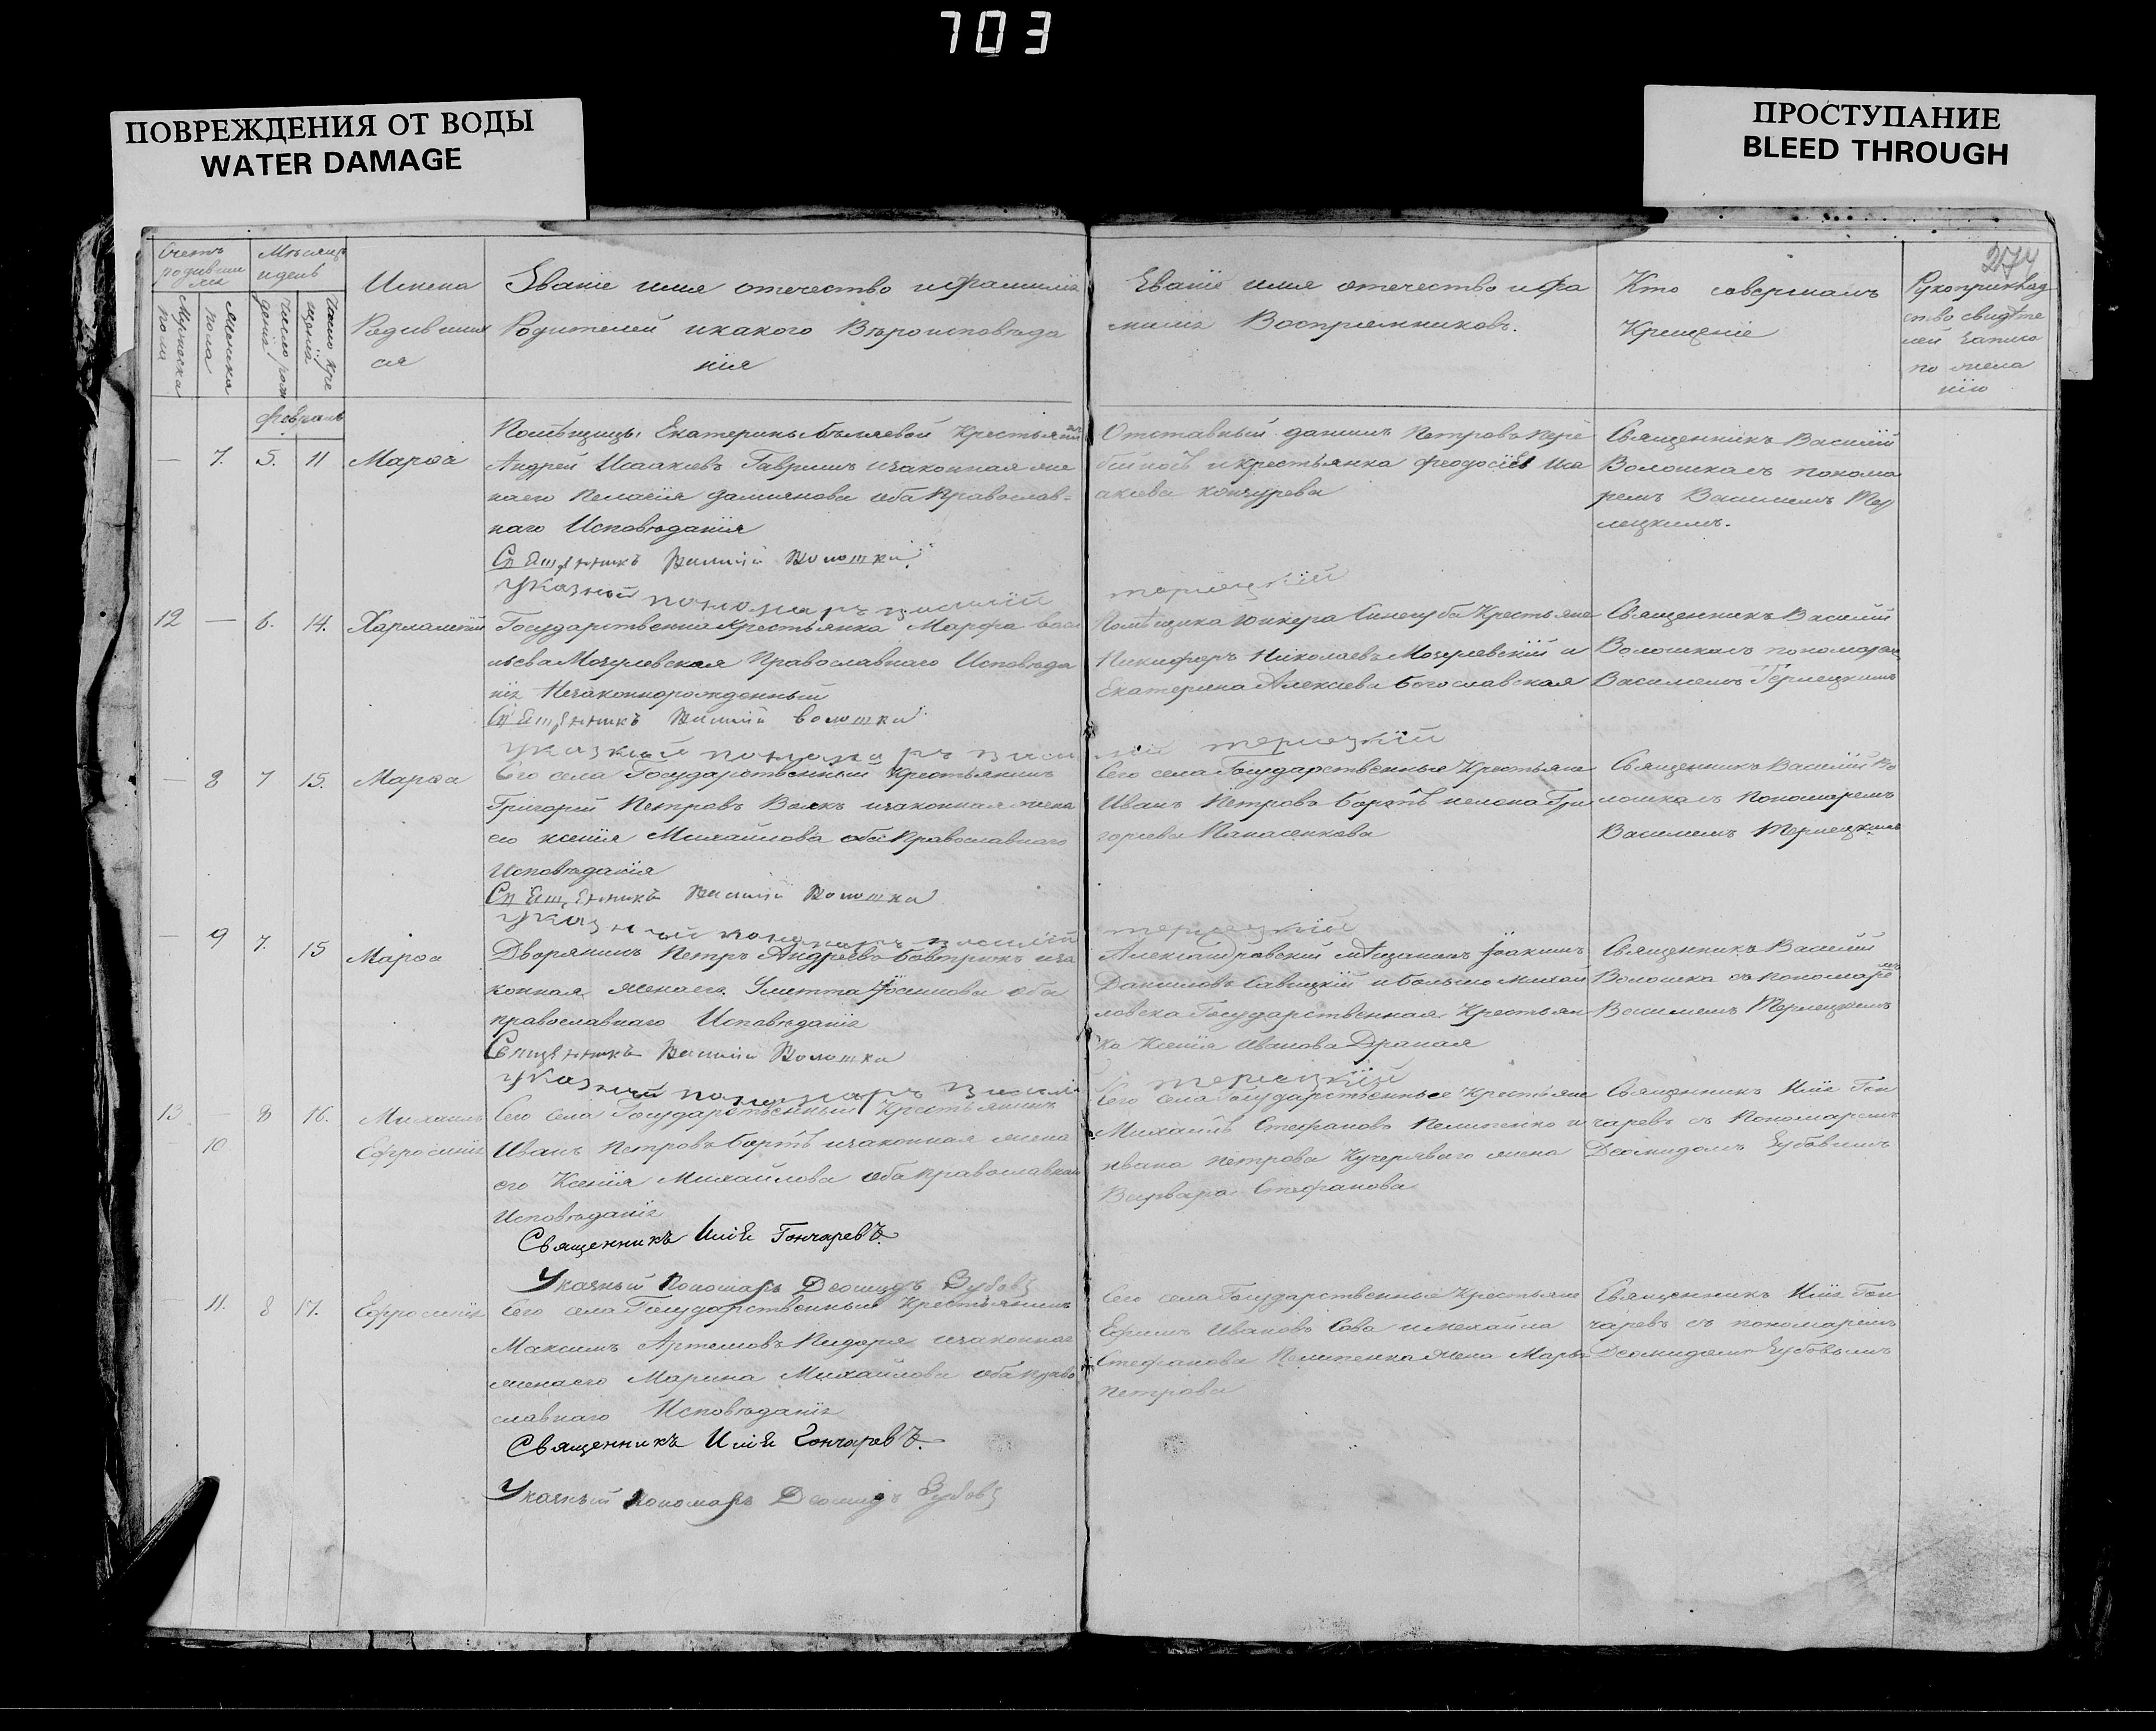 703
ПОВРЕЖДЕНИЯ ОТ ВОДЫ
WATER DAMAGE
ПРОСТУПАНИЕ
BLEED THROUGH
274
Счетъ родивших
Мѣсяцъ и день
Мужеска пола
Женска пола
Число рож денія
Число кре щенія
Имена
Родивших
ся
Званіе имя отечество и фамилія
Родителей и какого Вѣроисповѣда
нія
Званіе имя отечество и фа
миліи Воспріемниковъ.
Кто совершалъ
Крещеніе
Рукоприклад
ство свидѣте
лей записи
по жела
нію
февраль
— 7. 5. 11 Марѳа
Помѣщицы Екатерины Бѣляевой Крестьянинъ
Андрей Исаакіевъ Гавришъ и законная же
на его Пелагія Даміянова оба Православ-
наго Исповѣданія
Священникъ Василій Волошка
Указный пономарь Василій
Отставный Данилъ Петровъ Пере
и крестьянка Феодосія Иса
акіева
терлецкій
Священникъ Василій
Волошка съ понома
ремъ Василіемъ Тер
лецкимъ.
12 — 6. 14. Харлампій
Государственна Крестьянка Марфа Васи
льева Мозулевская Православнаго Исповѣда
нія Незаконнорожденный
Священникъ Василій Волошка
Указный пономарь Васи
Помѣщика Юнкера Синегуба Крестьяне
Никифоръ Николаевъ Мозулевскій и
Екатерина Алексіева Богославская
лій терлецкій
Священникъ Василій
Волошка съ пономарем
Василіемъ Терлецкимъ
— 8 7 15. Марѳа
Сего села Государственный Крестьянинъ
Григорій Петровъ Вовкъ и законная жена
его Ксенія Михайлова оба Православнаго
Исповѣданія
Священникъ Василій Волошка
Указный пономарь Василій
Сего села Государственные Крестьяне
Иванъ Петровъ Бортъ Гри
горіева Панасенкова
терлецкій
Священникъ Василій Во
лошка съ Пономаремъ
Василіемъ Терлецкимъ
— 9 7. 15 Марѳа
Дворянинъ Петръ Андреевъ Бовтрюкъ и за
конная жена его Осипова оба
православнаго Исповѣданія
Священникъ Василій Волошка
Указный пономарь Василі
Александровскій мѣщанинъ Іоакимъ
Даниловъ Савицкій и Больше Михай
ловска Государственная Крестьян
ка Ксенія Иванова Драная
терлецкій
Священникъ Василій
Волошка съ пономаремъ
Василіемъ Терлецкимъ
13 — 8 16. Михаилъ
10 Ефросинія
Сего села Государственный Крестьянинъ
Иванъ Петровъ Бортъ и законная жена
его Ксенія Михайлова оба православнаго
Исповѣданія
Священникъ Илія Гончаревъ.
Указный Пономарь Деомидъ Зубовъ
Сего села Государственные Крестьяне
Михаилъ Стефановъ Пелипенко и
Ивана Петрова Кучеряваго жена
Варвара Стефанова
Священникъ Илія Гон
чаревъ съ Пономаремъ
Деомидомъ Зубовымъ
— 11. 8 17. Ефросинія
Сего села Государственный Крестьянинъ
Максимъ Артемовъ и законная
жена его Марина Михайлова оба право
славнаго Исповѣданія
Священникъ Илія Гончаревъ.
Указный пономарь Деомидъ Зубовъ
Сего села Государственные Крестьяне
Ефимъ Ивановъ Сова и Михайла
Стефанова Пелипенка жена Марья
Петрова
Священникъ Илія Гон
чаревъ съ пономаремъ
Деомидомъ Зубовымъ